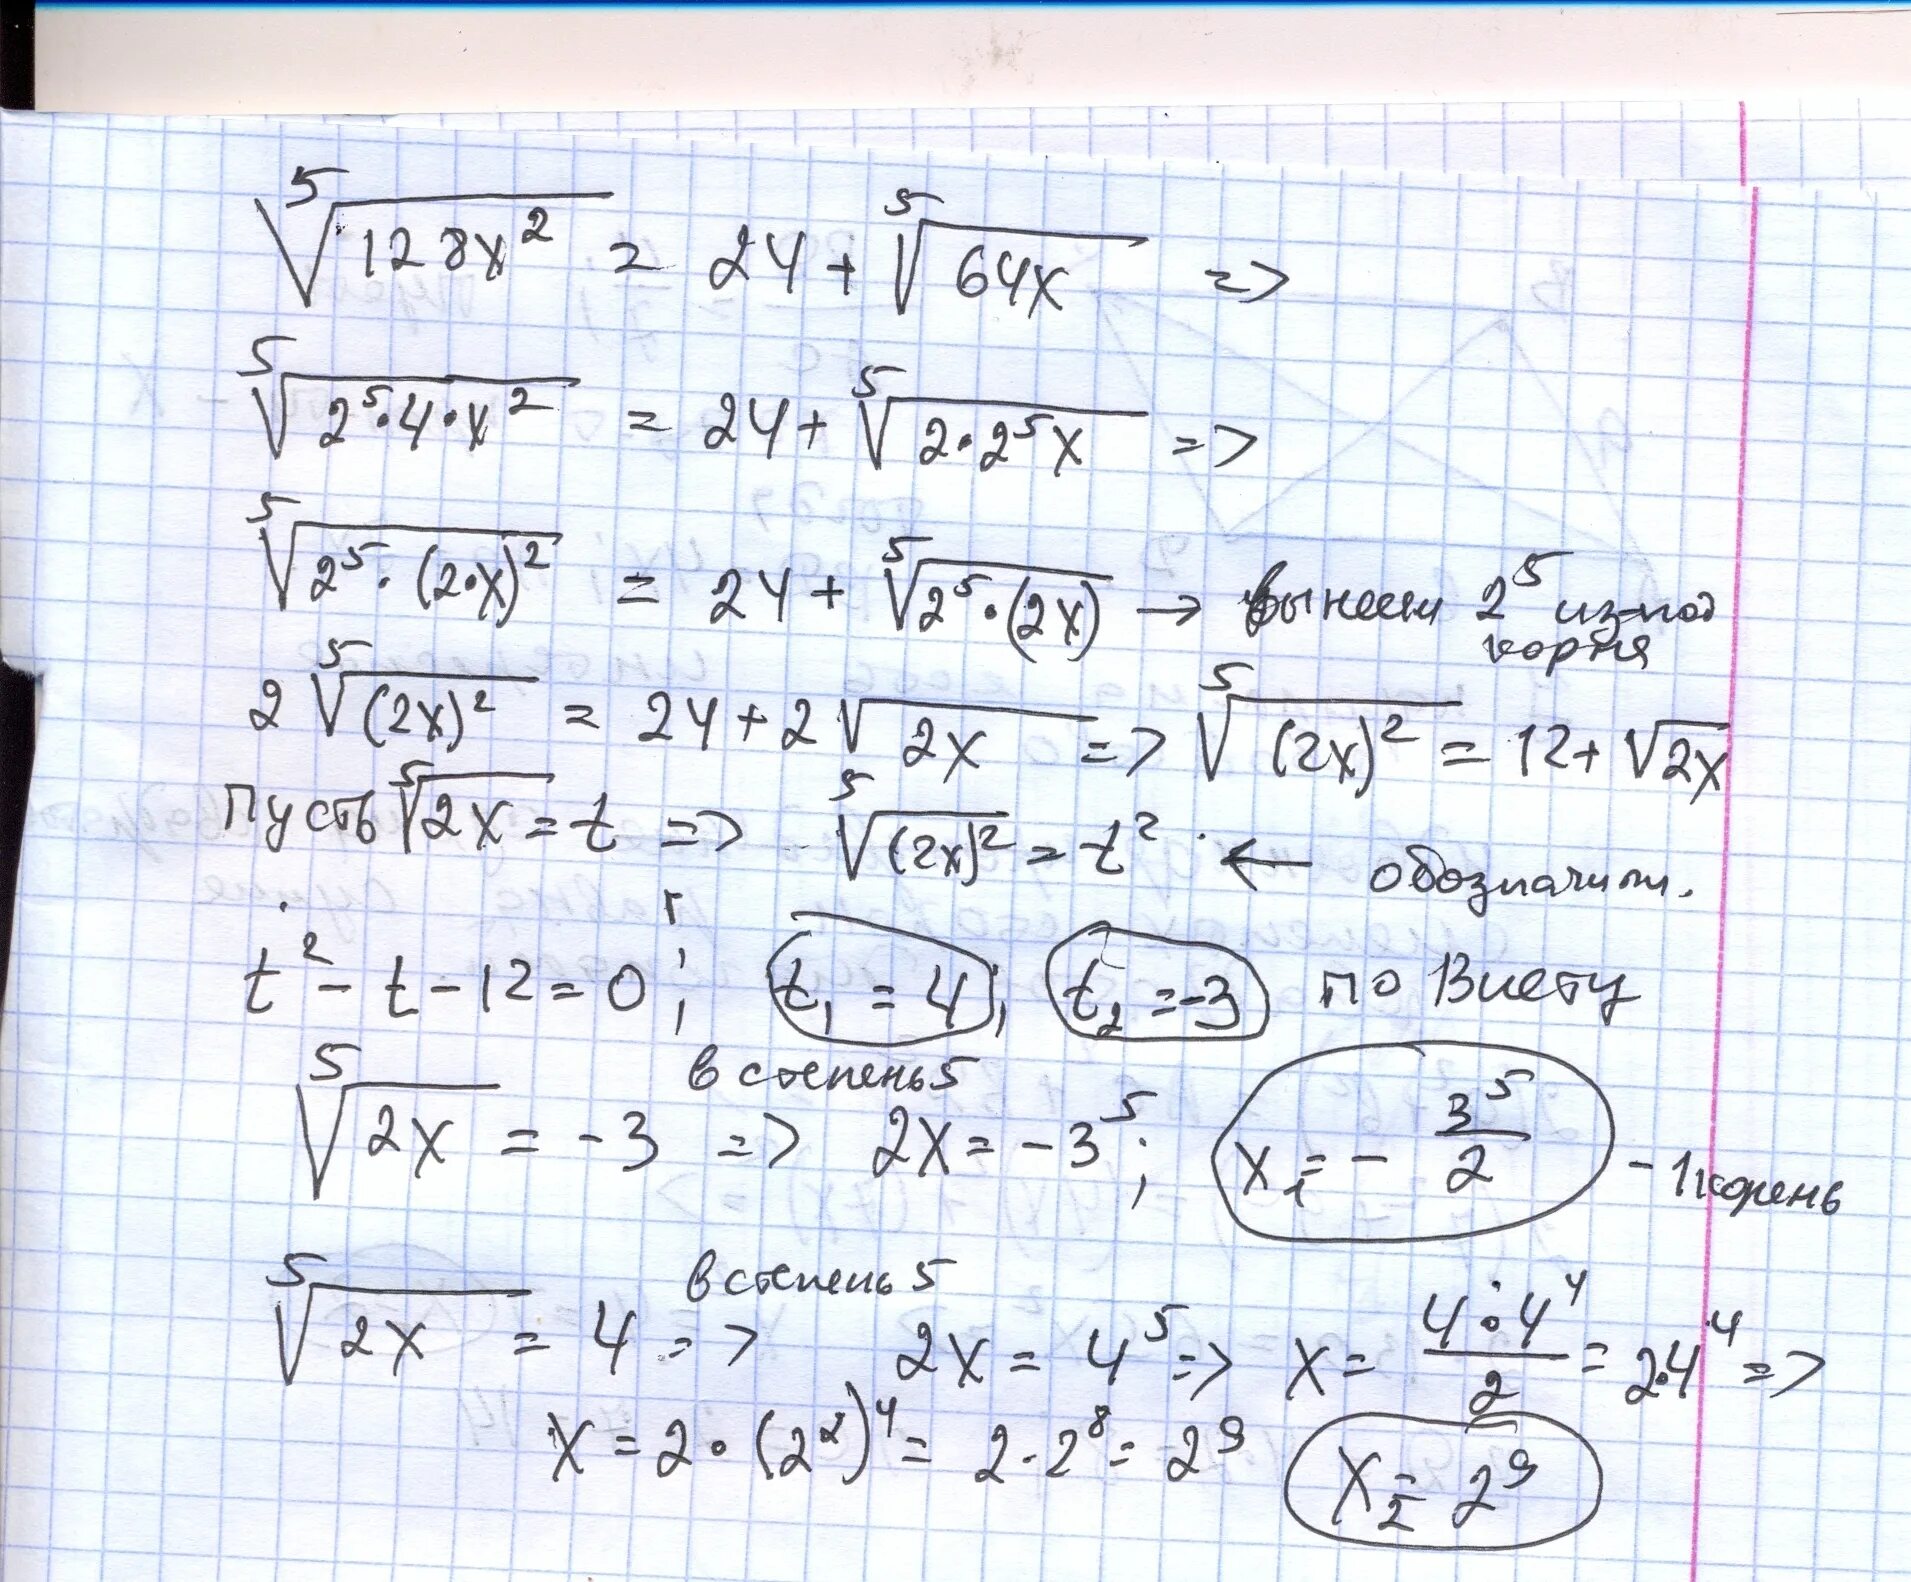 ⁵√128x² = 24 + ⁵√64x =>
⁵√2⁵·4·x² = 24 + ⁵√2·2⁵x =>
⁵√2⁵·(2·x)² = 24 + ⁵√2⁵·(2x) → вынесем 2⁵ из-под
корня
2 ⁵√(2x)² = 24 + 2√2x => ⁵√(2x)² = 12 + √2x
Пусть ⁵√2x = t => ⁵√(2x)² = t² ← обозначим.
t² - t - 12 = 0; t₁ = 4; t₂ = -3 по Виету
в степень 5
⁵√2x = -3 => 2x = -3⁵; x₁ = - 3⁵/2 - 1 корень
в степень 5
⁵√2x = 4 => 2x = 4⁵ => x = 4·4⁴/2 = 2·4⁴ =>
x = 2·(2²)⁴ = 2·2⁸ = 2⁹ x₂ = 2⁹